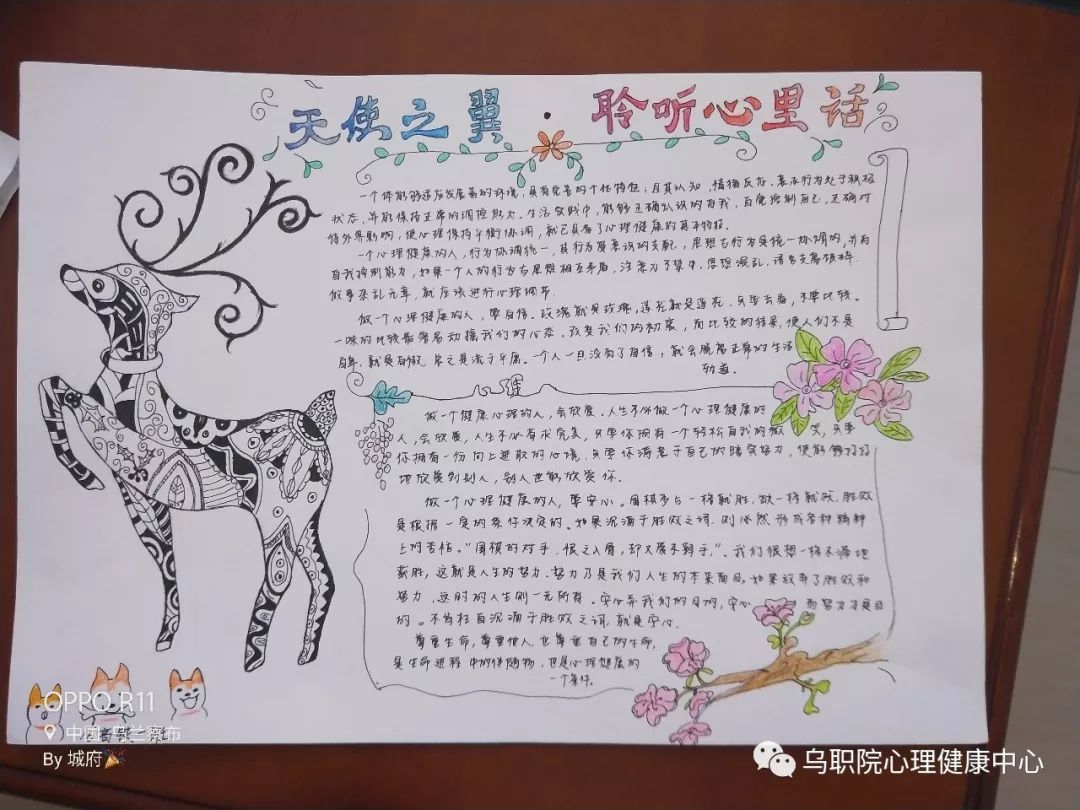 天使之翼·聆听心里话
一个你能够适应发展着的环境，具有完善的个性特征；且其认知，情绪反应，意志行为处于积极
状态，并能保持正常的调控能力。生活实践中，能够正确认识的自我，自觉控制自己，正确对
待外界影响，使心理保持平衡协调，就已具备了心理健康的基本特征。
一个心理健康的人，行为协调统一，其行为受意识的支配，思想与行为是统一协调的，并有
自我控制能力，如果一个人的行为与思想相互矛盾，注意力不集中，思想混乱，语言支离破碎，
做事杂乱无章，就应该进行心理调节.
做一个心理健康的人，要自信。玫瑰就是玫瑰，莲花就是莲花，只要去看，不要比较。
一味的比较最容易动摇我们的心态，改变我们的初衷，而比较的结果，使人们不是
自卑，就是自傲，总之是流于平庸。一个人一旦没有了自信，就会脱离正常的生活
轨道。
心理
做一个健康心理的人，会欣赏。人生不必做一个心理健康的
人，会欣赏，人生不必有求完美，只要你拥有一个轻松自我的微笑，只要
你拥有一份向上进取的心境，只要你满意于自己的踏实努力，便能够好好
地欣赏到别人，别人也能欣赏你.
做一个心理健康的人，要安心。围棋多占一格就胜，缺一格就败，胜败
是根据一定的条件决定的。如果沉湎于胜败之词，则必然形成各种精神
上的苦恼。“围棋的对手，恨之入骨，却又展不释手，”。我们很想一格不漏地
获胜，这就是人生的努力.努力乃是我们人生的本来面目，如果放弃了胜败和
努力，这时的人生则一无所有。安心并我们的目的，安心 而努力才是目
的。不肯枉自沉湎于胜败之词，就是安心.
尊重生命，尊重他人，也尊重自己的生命，
是生命进程中的伴随物，也是心理健康的
一个条件.
OPPO R11
中国·乌兰察布
By 城府
乌职院心理健康中心